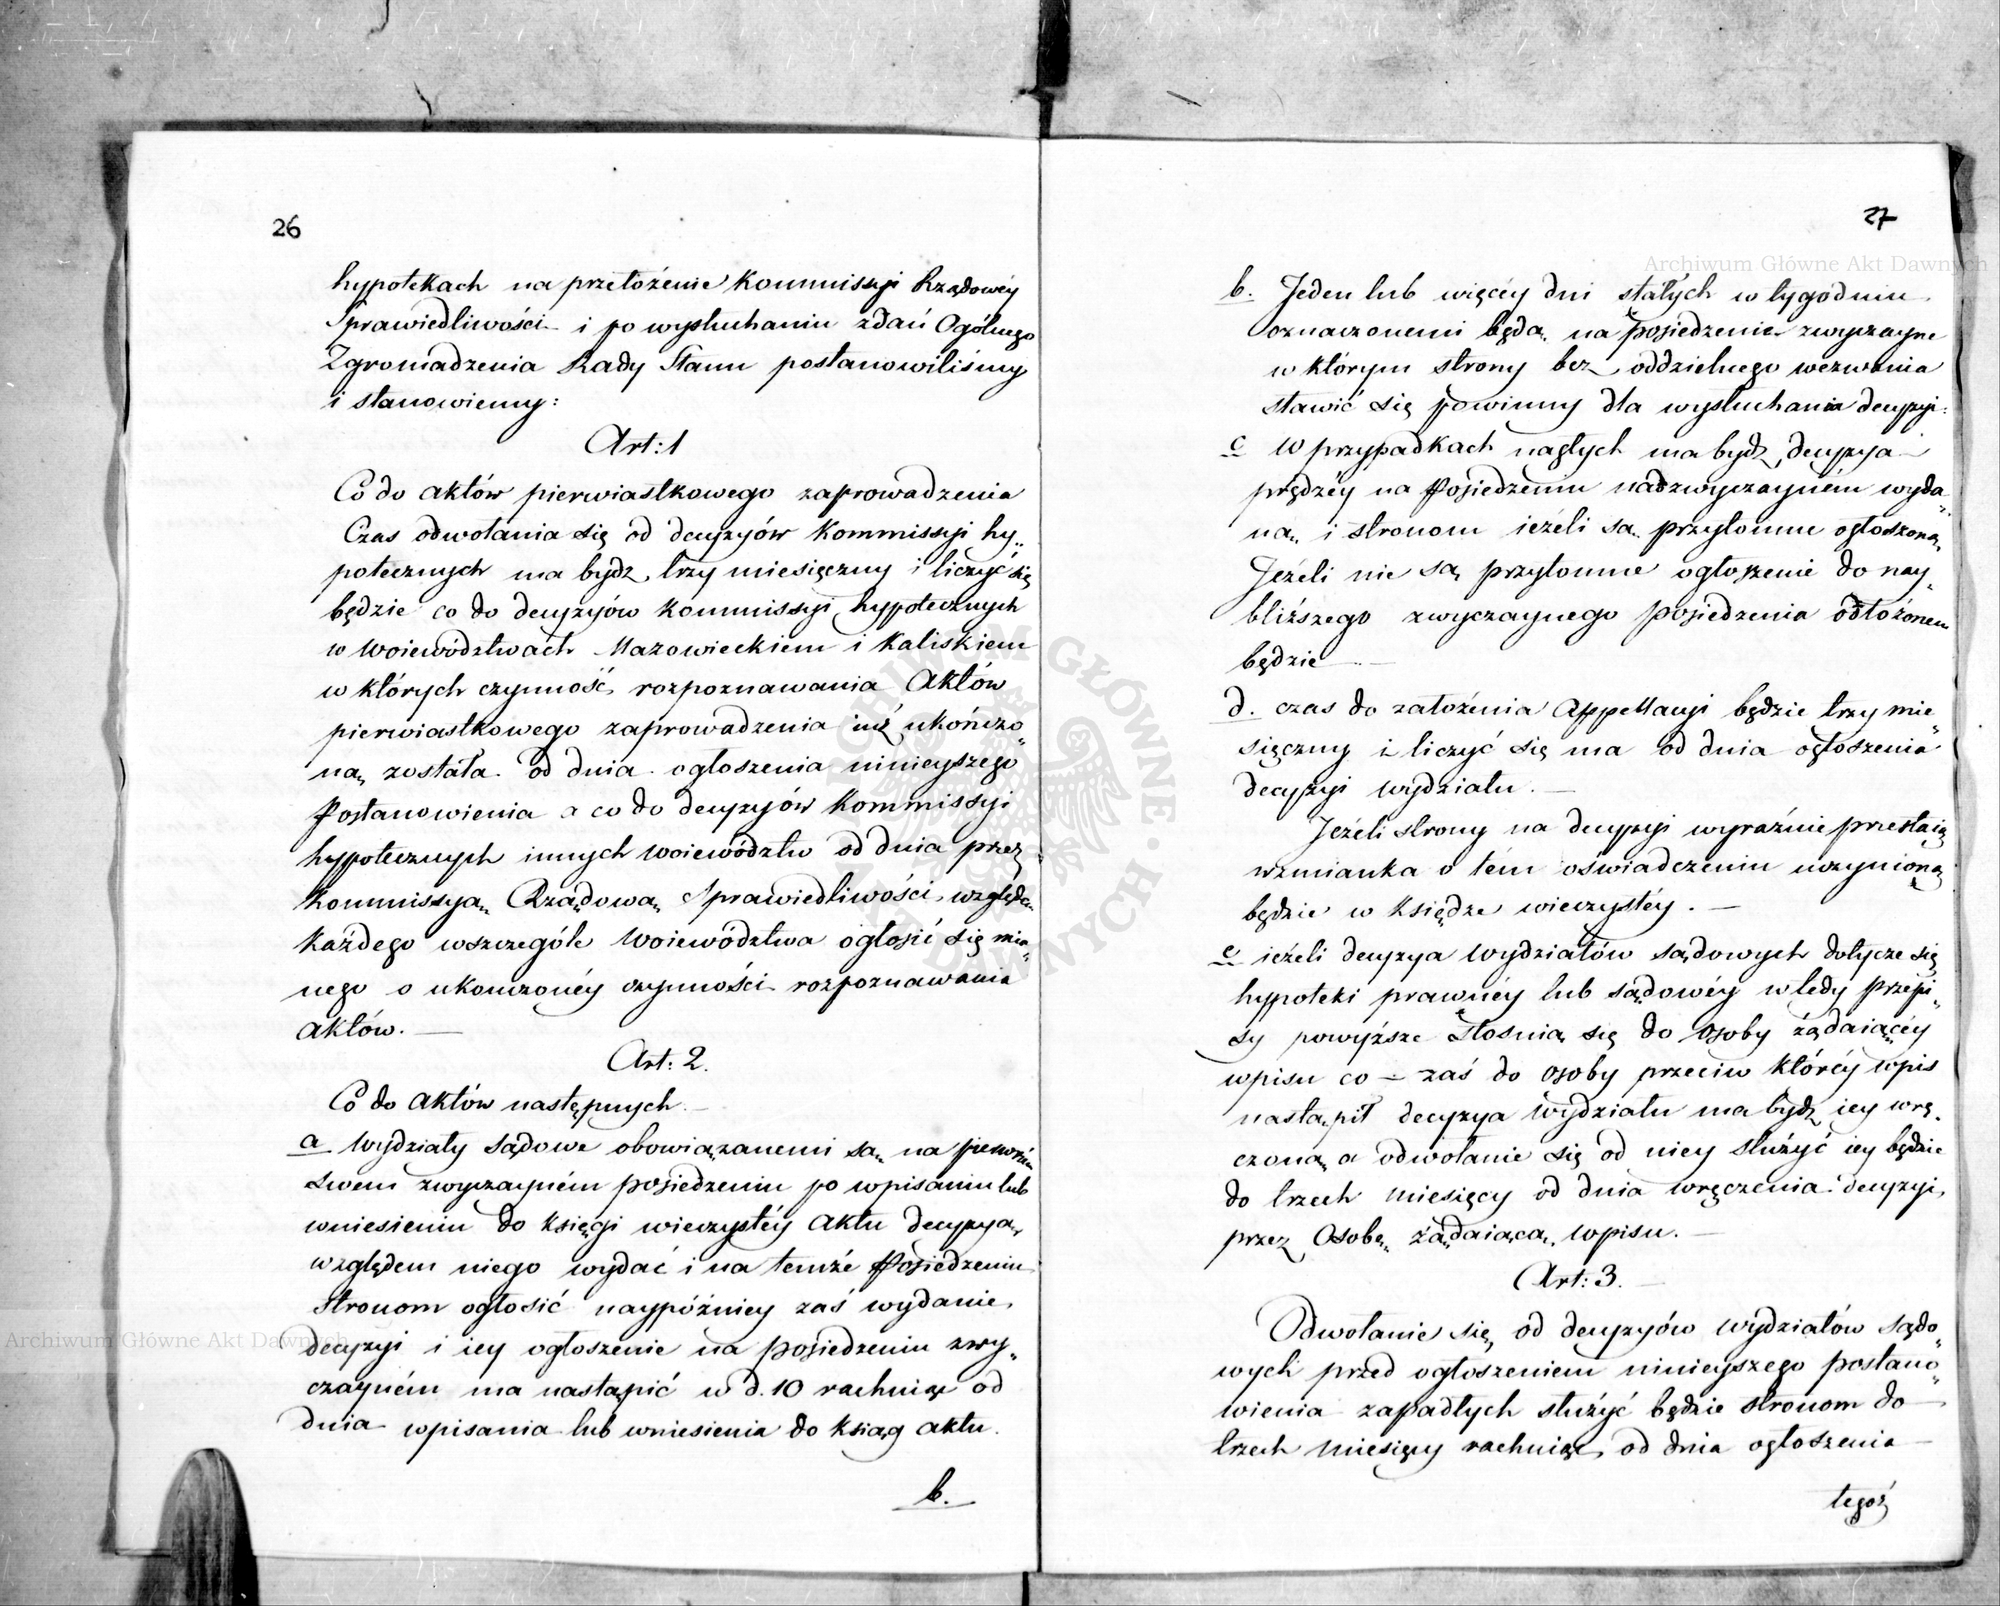 26
hypotekach na przełożenie Kommissyi Rządowéy
Sprawiedliwości i po wysłuchaniu zdań Ogólnego
Zgromadzenia Rady Stanu postanowiliśmy
i stanowiemy:
Art: 1
Co do aktów pierwiastkowego zaprowadzenia
Czas odwołania się od decyzyów Kommissyi hy„
potecznych ma bydz trzy miesięczny i liczyć się
będzie co do decyzyów Kommissyi hypotecznych
w Woiewództwach Mazowieckiem i Kaliskiem
w których czynność rozpoznawania Aktów
pierwiastkowego zaprowadzenia iuż ukończo„
ną została od dnia ogłoszenia ninieyszego
Postanowienia a co do decyzyów Kommissyi
hypotecznych innych woiewództw od dnia przez
Kommissyą Rządową Sprawiedliwości względem
każdego wszczególe Woiewództwa ogłosić się mia„
nego o ukończonéy czynności rozpoznawania
aktów. —
Art: 2.
Co do aktów następnych. —
a Wydziały sądowe obowiązanemi są na pierwszém
swem zwyczayném posiedzeniu po wpisaniu lub
wniesieniu do księgi wieczystéy aktu decyzyą
względem niego wydać i na temże Posiedzeniu
Stronom ogłosić naypóźniey zaś wydanie
decyzyi i iey ogłoszenie na posiedzeniu zwy„
czayném ma nastąpić w d. 10 rachuiąc od
dnia wpisania lub wniesienia do ksiąg aktu.
b.
27
b. Jeden lub więcéy dni stałych w tygodniu
oznaczonemi będą na posiedzenie zwyczayne
w którym strony bez oddzielnego wezwania
stawić się powinny dla wysłuchania decyzyi.
c W przypadkach nagłych ma bydz decyzya
prędzéy na Posiedzeniu nadzwyczayném wyda„
ną i stronom ieżeli są przytomne ogłoszoną
Jeżeli nie są przytomne ogłoszenie do nay„
bliższego zwyczaynego posiedzenia odłożonem
będzie —
d. czas do założenia Appellacyi będzie trzy mie„
sięczny i liczyć się ma od dnia ogłoszenia
decyzyi wydziału. —
Jeżeli strony na decyzyi wyraźnie przestaią
wzmianka o tém oświadczeniu uczynioną
będzie w księdze wieczystéy. —
e ieżeli decyzya wydziałów sądowych dotycze się
hypoteki prawnéy lub sądowéy wtedy przepi„
sy powyższe stosuią się do osoby żądaiącéy
wpisu co — zaś do osoby przeciw któréy wpis
nastąpił decyzya wydziału ma bydz iey wrę„
czoną a odwołanie się od niey służyć iey będzie
do trzech miesięcy od dnia wręczenia decyzyi
przez Osobę żądaiącą wpisu. —
Art: 3. —
Odwołanie się od decyzyów wydziałów sądo„
wych przed ogłoszeniem ninieyszego postano„
wienia zapadłych służyć będzie stronom do
trzech miesięcy rachuiąc od dnia ogłoszenia
tegoż
Archiwum Główne Akt Dawnych
Archiwum Główne Akt Dawnych
ARCHIWUM GŁÓWNE AKT DAWNYCH